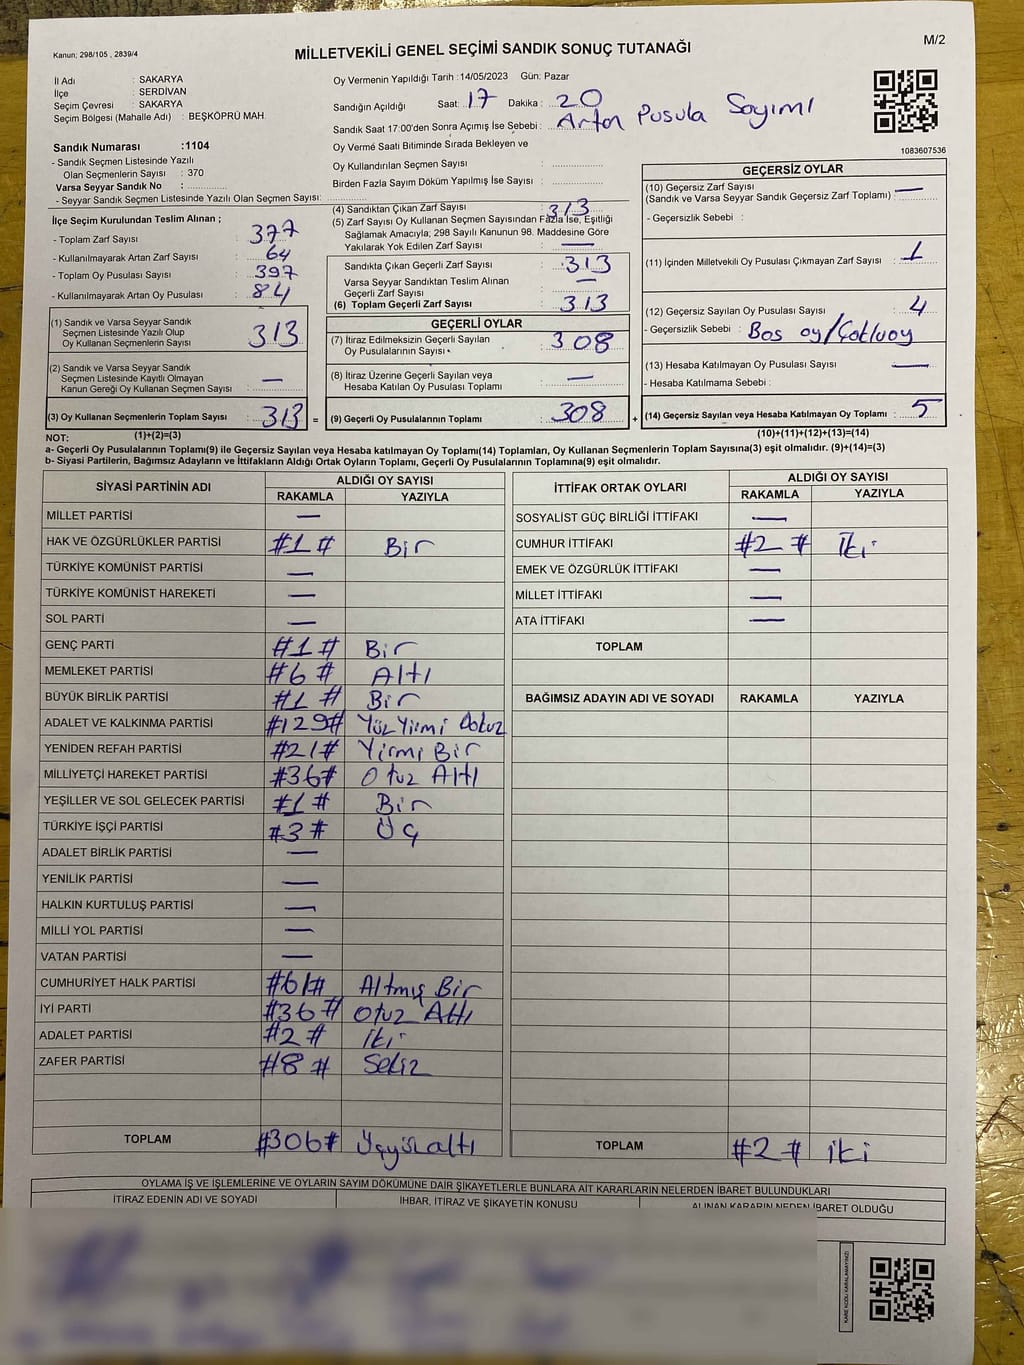 Kanun; 298/105 , 2839/4
MİLLETVEKİLİ GENEL SEÇİMİ SANDIK SONUÇ TUTANAĞI
M/2
İl Adı : SAKARYA
İlçe : SERDİVAN
Seçim Çevresi : SAKARYA
Seçim Bölgesi (Mahalle Adı) : BEŞKÖPRÜ MAH.
Sandık Numarası :1104
- Sandık Seçmen Listesinde Yazılı
Olan Seçmenlerin Sayısı : 370
Varsa Seyyar Sandık No :
- Seyyar Sandık Seçmen Listesinde Yazılı Olan Seçmen Sayısı:
Oy Vermenin Yapıldığı Tarih :14/05/2023 Gün: Pazar
Sandığın Açıldığı Saat: 17 Dakika : 20
Sandık Saat 17:00'den Sonra Açımış İse Sebebi : Artan Pusula Sayımı
Oy Verme Saati Bitiminde Sırada Bekleyen ve
Oy Kullandırılan Seçmen Sayısı :
Birden Fazla Sayım Döküm Yapılmış İse Sayısı :
1083607536
İlçe Seçim Kurulundan Teslim Alınan ;
- Toplam Zarf Sayısı : 377
- Kullanılmayarak Artan Zarf Sayısı : 64
- Toplam Oy Pusulası Sayısı : 397
- Kullanılmayarak Artan Oy Pusulası : 84
(1) Sandık ve Varsa Seyyar Sandık
Seçmen Listesinde Yazılı Olup
Oy Kullanan Seçmenlerin Sayısı : 313
(2) Sandık ve Varsa Seyyar Sandık
Seçmen Listesinde Kayıtlı Olmayan
Kanun Gereği Oy Kullanan Seçmen Sayısı : —
(3) Oy Kullanan Seçmenlerin Toplam Sayısı : 313 =
(1)+(2)=(3)
(4) Sandıktan Çıkan Zarf Sayısı : 313
(5) Zarf Sayısı Oy Kullanan Seçmen Sayısından Fazla İse, Eşitliği
Sağlamak Amacıyla; 298 Sayılı Kanunun 98. Maddesine Göre
Yakılarak Yok Edilen Zarf Sayısı : —
Sandıkta Çıkan Geçerli Zarf Sayısı : 313
Varsa Seyyar Sandıktan Teslim Alınan
Geçerli Zarf Sayısı : —
(6) Toplam Geçerli Zarf Sayısı : 313
GEÇERLİ OYLAR
(7) İtiraz Edilmeksizin Geçerli Sayılan
Oy Pusulalarının Sayısı : 308
(8) İtiraz Üzerine Geçerli Sayılan veya
Hesaba Katılan Oy Pusulası Toplamı : —
(9) Geçerli Oy Pusulalarının Toplamı : 308 +
GEÇERSİZ OYLAR
(10) Geçersiz Zarf Sayısı
(Sandık ve Varsa Seyyar Sandık Geçersiz Zarf Toplamı) : —
- Geçersizlik Sebebi :
(11) İçinden Milletvekili Oy Pusulası Çıkmayan Zarf Sayısı : 1
(12) Geçersiz Sayılan Oy Pusulası Sayısı : 4
- Geçersizlik Sebebi : Boş oy/Çokluoy
(13) Hesaba Katılmayan Oy Pusulası Sayısı : —
- Hesaba Katılmama Sebebi :
(14) Geçersiz Sayılan veya Hesaba Katılmayan Oy Toplamı : 5
(10)+(11)+(12)+(13)=(14)
NOT:
a- Geçerli Oy Pusulalarının Toplamı(9) ile Geçersiz Sayılan veya Hesaba katılmayan Oy Toplamı(14) Toplamları, Oy Kullanan Seçmenlerin Toplam Sayısına(3) eşit olmalıdır. (9)+(14)=(3)
b- Siyasi Partilerin, Bağımsız Adayların ve İttifakların Aldığı Ortak Oyların Toplamı, Geçerli Oy Pusulalarının Toplamına(9) eşit olmalıdır.
SİYASİ PARTİNİN ADI
ALDIĞI OY SAYISI
RAKAMLA YAZIYLA
MİLLET PARTİSİ —
HAK VE ÖZGÜRLÜKLER PARTİSİ #1# Bir
TÜRKİYE KOMÜNİST PARTİSİ —
TÜRKİYE KOMÜNİST HAREKETİ —
SOL PARTİ —
GENÇ PARTİ #1# Bir
MEMLEKET PARTİSİ #6# Altı
BÜYÜK BİRLİK PARTİSİ #1# Bir
ADALET VE KALKINMA PARTİSİ #129# Yüz Yirmi Dokuz
YENİDEN REFAH PARTİSİ #21# Yirmi Bir
MİLLİYETÇİ HAREKET PARTİSİ #36# Otuz Altı
YEŞİLLER VE SOL GELECEK PARTİSİ #1# Bir
TÜRKİYE İŞÇİ PARTİSİ #3# Üç
ADALET BİRLİK PARTİSİ —
YENİLİK PARTİSİ —
HALKIN KURTULUŞ PARTİSİ —
MİLLİ YOL PARTİSİ —
VATAN PARTİSİ —
CUMHURİYET HALK PARTİSİ #61# Altmış Bir
İYİ PARTİ #36# Otuz Altı
ADALET PARTİSİ #2# İki
ZAFER PARTİSİ #8# Sekiz
TOPLAM #306# Üçyüzaltı
İTTİFAK ORTAK OYLARI
ALDIĞI OY SAYISI
RAKAMLA YAZIYLA
SOSYALİST GÜÇ BİRLİĞİ İTTİFAKI —
CUMHUR İTTİFAKI #2# İki
EMEK VE ÖZGÜRLÜK İTTİFAKI —
MİLLET İTTİFAKI —
ATA İTTİFAKI —
TOPLAM
BAĞIMSIZ ADAYIN ADI VE SOYADI RAKAMLA YAZIYLA
TOPLAM #2# iki
OYLAMA İŞ VE İŞLEMLERİNE VE OYLARIN SAYIM DÖKÜMÜNE DAİR ŞİKAYETLERLE BUNLARA AİT KARARLARIN NELERDEN İBARET BULUNDUKLARI
İTİRAZ EDENİN ADI VE SOYADI
İHBAR, İTİRAZ VE ŞİKAYETİN KONUSU
ALINAN KARARIN NEDEN İBARET OLDUĞU
KARE KODU KARALAMAYINIZ!